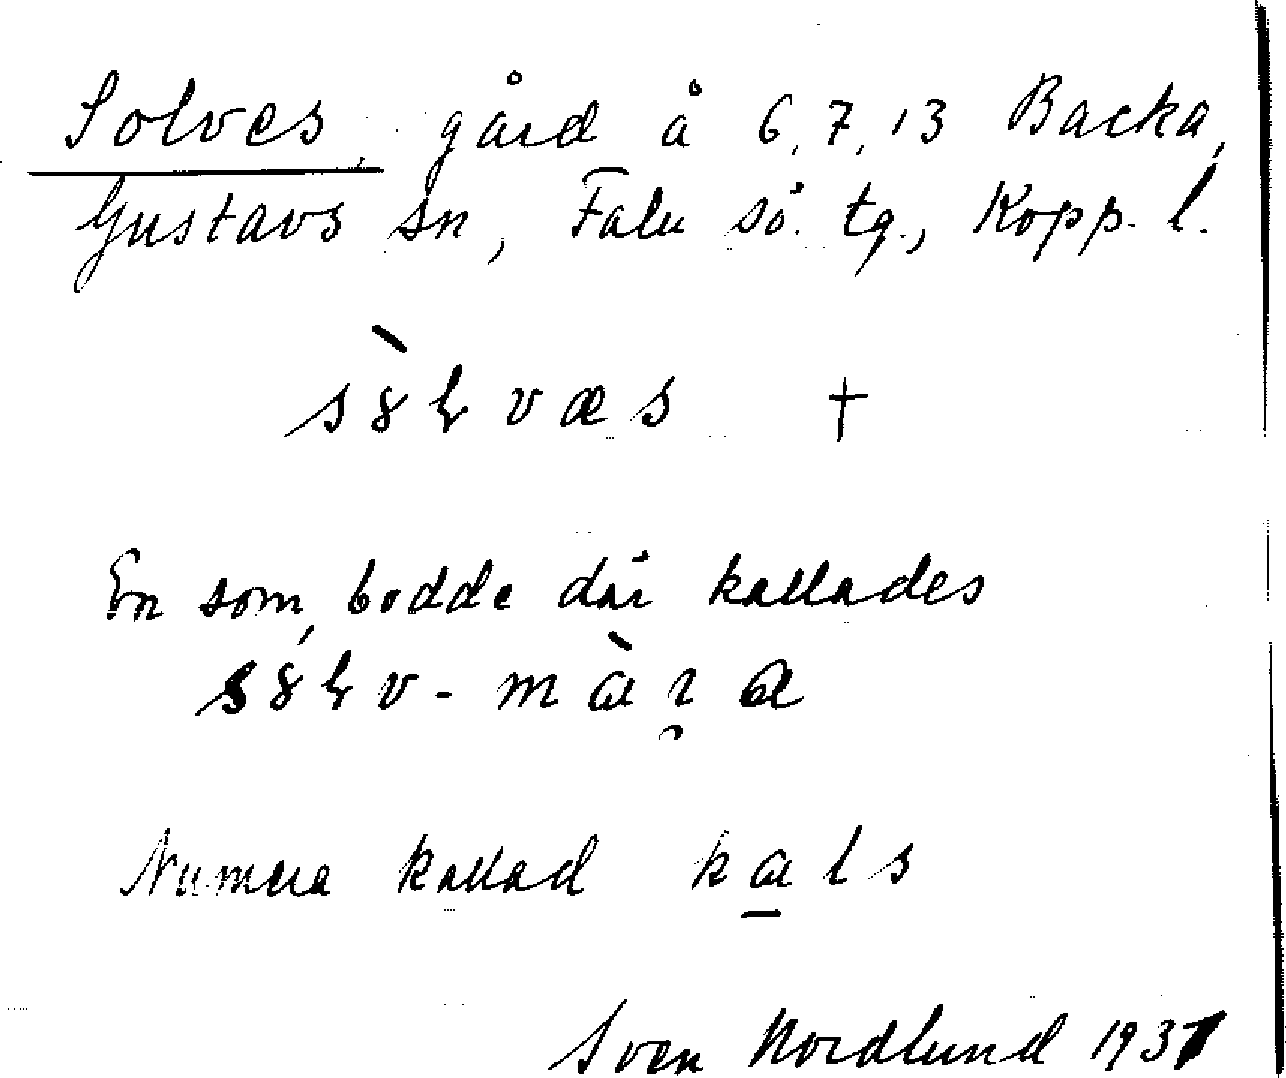 Solves, gård å 6, 7, 13 Backa,
Gustavs sn, Falu sö. tg., Kopp. l.
sꞜ̀ɽvæs †
En som bodde där kallades
sꞜ́ɽv-mɑ̀ɹ̯ɑ
Numera kallad kɑ̱ls
Sven Nordlund 1937